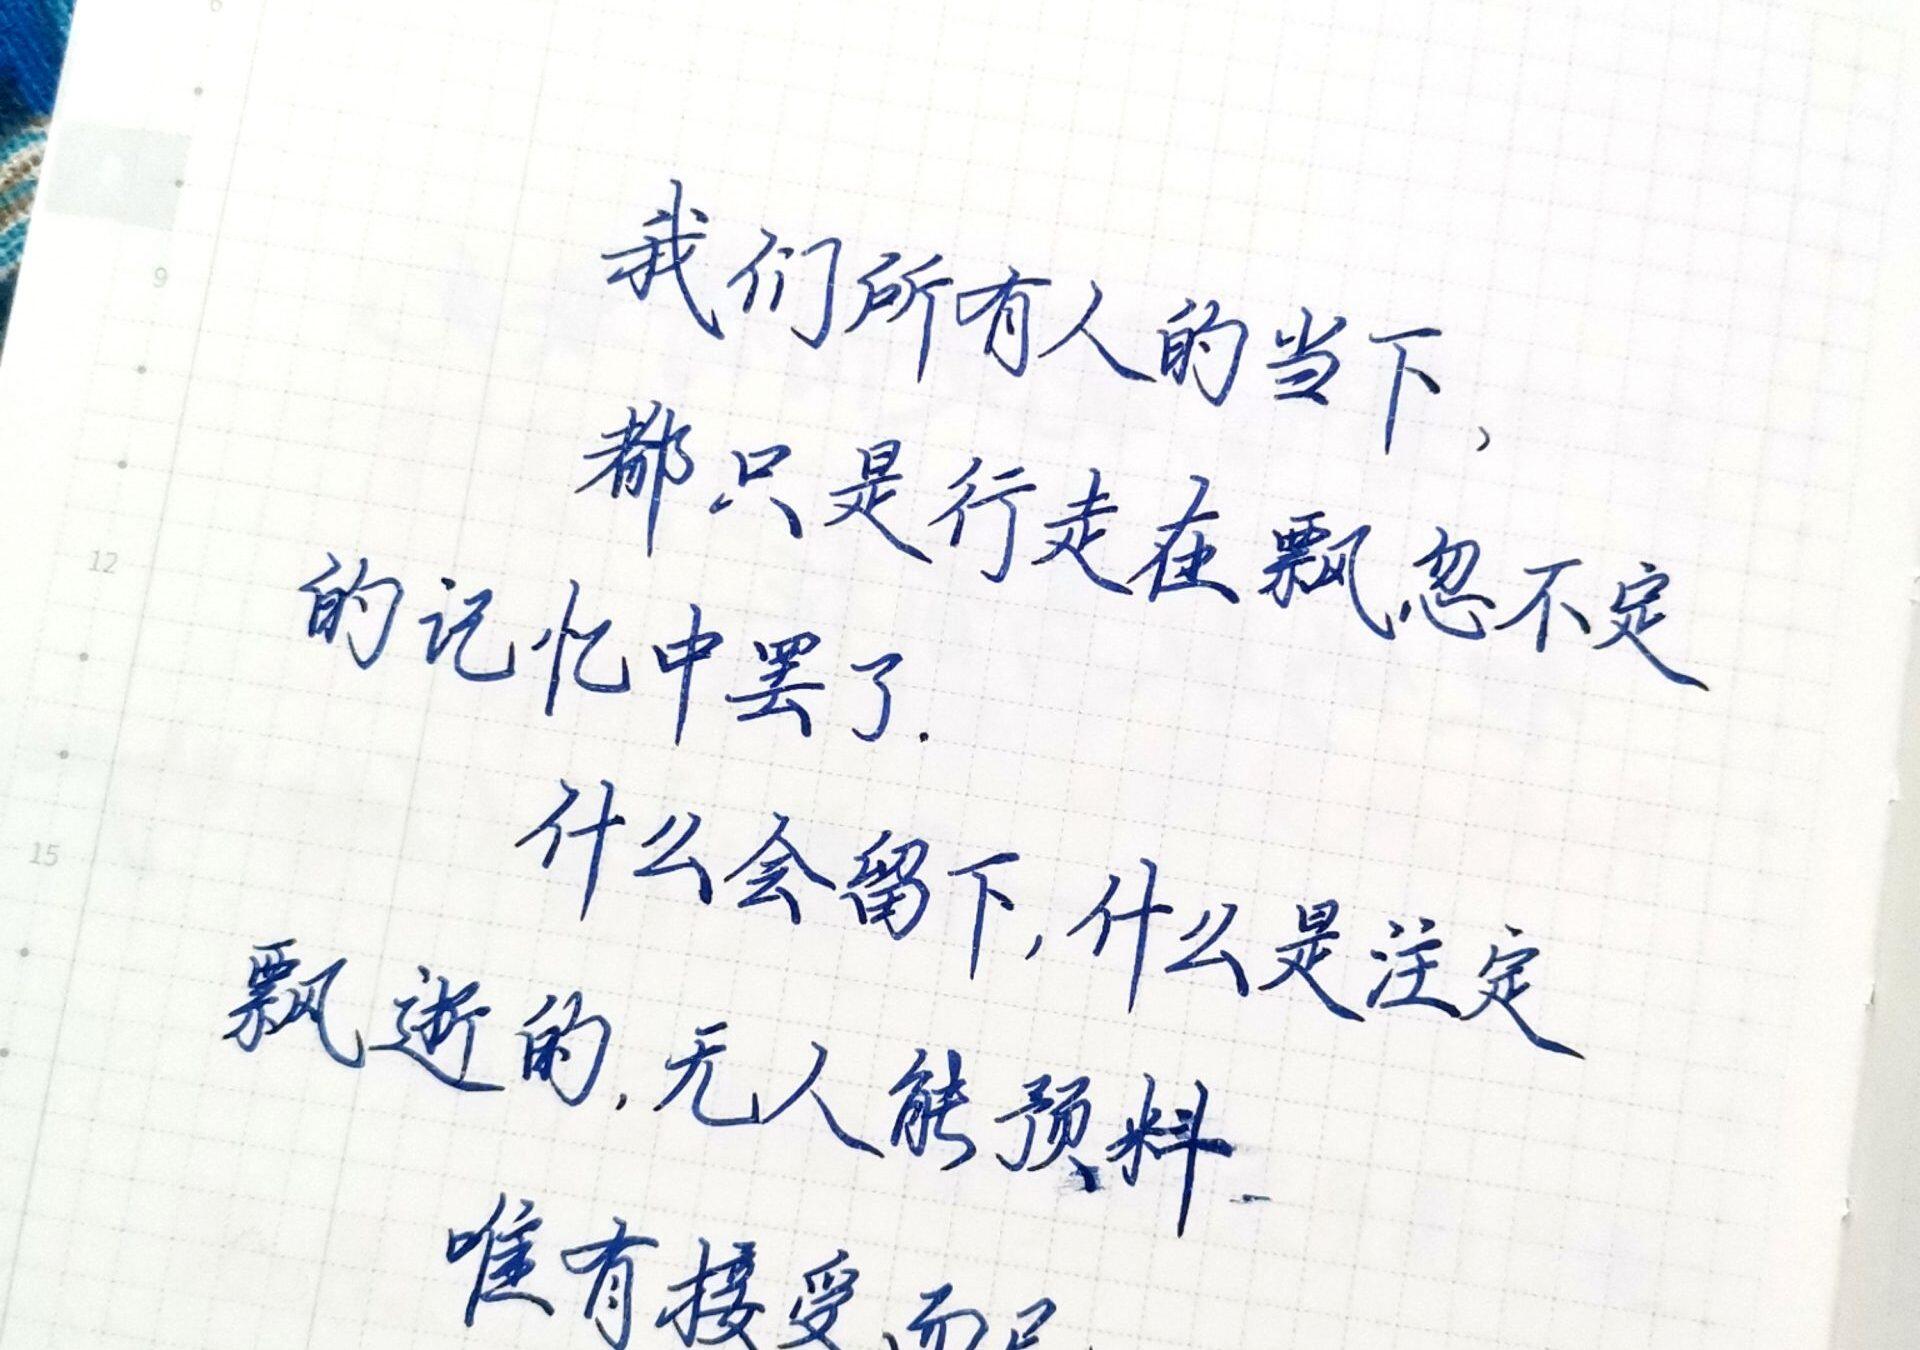 6
9
12
15
我们所有人的当下,
都只是行走在飘忽不定
的记忆中罢了.
什么会留下,什么是注定
飘逝的,无人能预料.
唯有接受而已